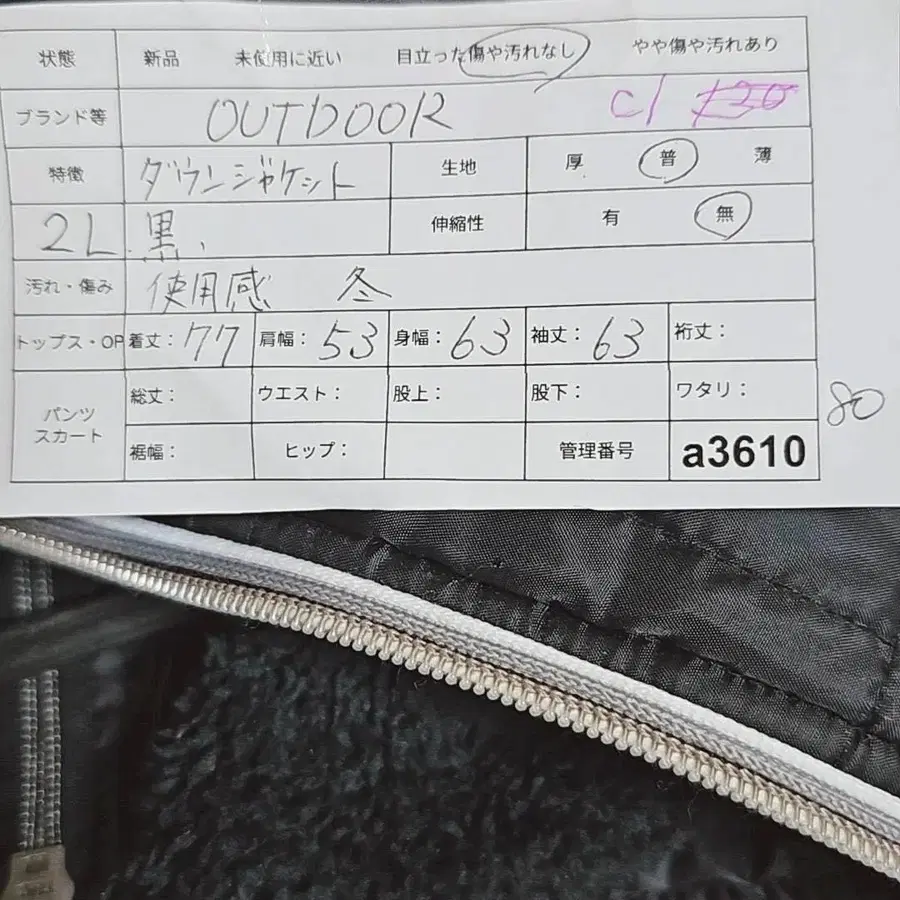 状態 新品 未使用に近い 目立った傷や汚れなし やや傷や汚れあり
ブランド等 OUTDOOR C1
特徴 ダウンジャケット 生地 厚 普 薄
2L 黒、 伸縮性 有 無
汚れ・傷み 使用感 冬
トップス・OP 着丈：77 肩幅：53 身幅：63 袖丈：63 裄丈：
パンツ スカート 総丈： ウエスト： 股上： 股下： ワタリ： 80
裾幅： ヒップ： 管理番号 a3610